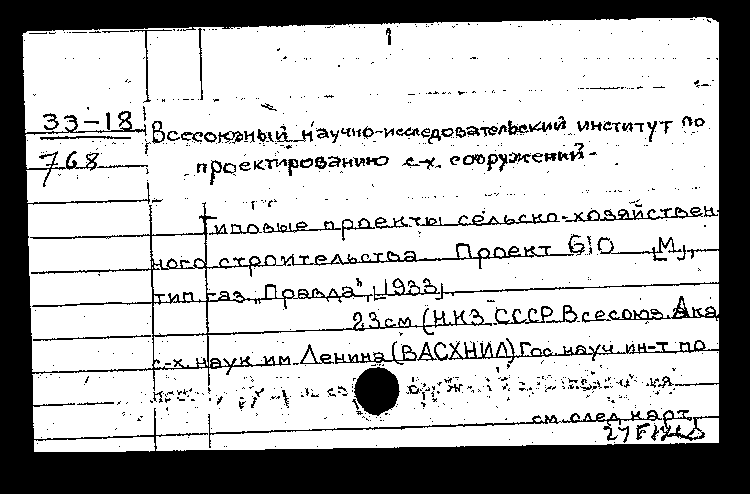 33-18
768
Всесоюзный научно-исследовательский институт по
проектированию с-х. сооружений-
Типовые проекты сельско-хозяйствен
ного строительства Проект 610 [М],
тип. газ. „Правда“, [1933].
23см (НКЗ СССР Всесоюз. Ака
с-х. наук им Ленина (ВАСХНИЛ) Гос. науч. ин-т по
см. след. карт.